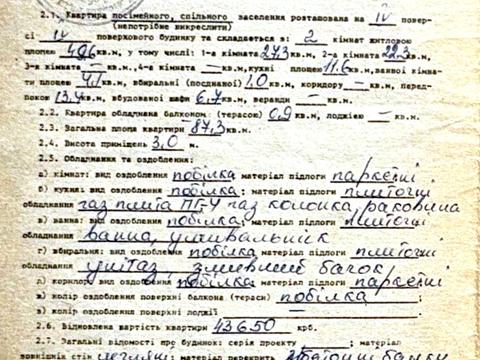 2.1. Квартира посімейного, спільного заселення розташована на IV повер-
(непотрібне викреслити)
сі IV поверхового будинку та складається в: 2 кімнат житловою
площею 49,6 кв.м, у тому числі: 1-а кімната 27,3 кв.м, 2-а кімната 22,3 кв.м,
3-я кімната — кв.м., 4-а кімната — кв.м, кухні площею 11,6 кв.м, ванної кімна-
ти площею 4,1 кв.м, вбиральні (поєднаної) 1,0 кв.м, коридору — кв.м, перед-
покою 13,4 кв.м, вбудованої шафи 6,7 кв.м, веранди — кв.м.
2.2. Квартира обладнана балконом (терасою) 0,9 кв.м, лоджією — кв.м.
2.3. Загальна площа квартири 87,3 кв.м.
2.4. Висота приміщень 3,0 м.
2.5. Обладнання та оздоблення:
а) кімнат: вид оздоблення побілка матеріал підлоги паркетні
б) кухня: вид оздоблення побілка; матеріал підлоги плиточні
обладнання газ плита ПГ-4 газ колонка, раковина
в) ванна: вид оздоблення побілка; матеріал підлоги плиточні
обладнання ванна, умивальнік
г) вбиральня: вид оздоблення побілка матеріал підлоги плиточні
обладнання унітаз, змивний бачок
вид оздоблення побілка матеріал підлоги паркетні
колір оздоблення поверхні балкона (тераси) побілка
колір оздоблення поверхні лоджії —
2.6. Відновлена вартість квартири 43650 крб.
2.7. Загальні відомості про будинок: серія проекту —; матеріал
зовнішніх стін матеріал перекрить балки